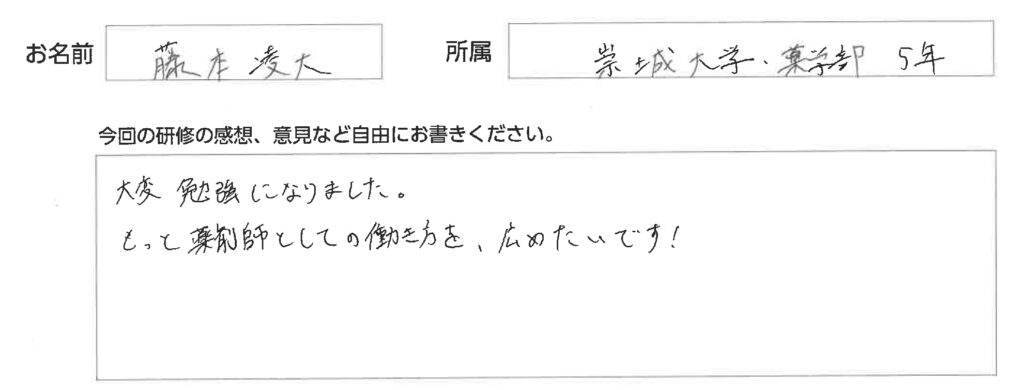 お名前 藤本凌大 所属 崇城大学・薬学部 5年
今回の研修の感想、意見など自由にお書きください。
大変 勉強になりました。
もっと薬剤師としての働き方を、広めたいです!